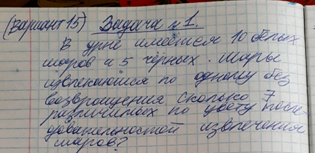 (Вариант 15) Задача №1
В урне имеется 10 белых
шаров и 5 чёрных. Шары
извлекаются по одному без
возвращения сколько 7
различных по цвету после
довательностей извлечения
шаров?